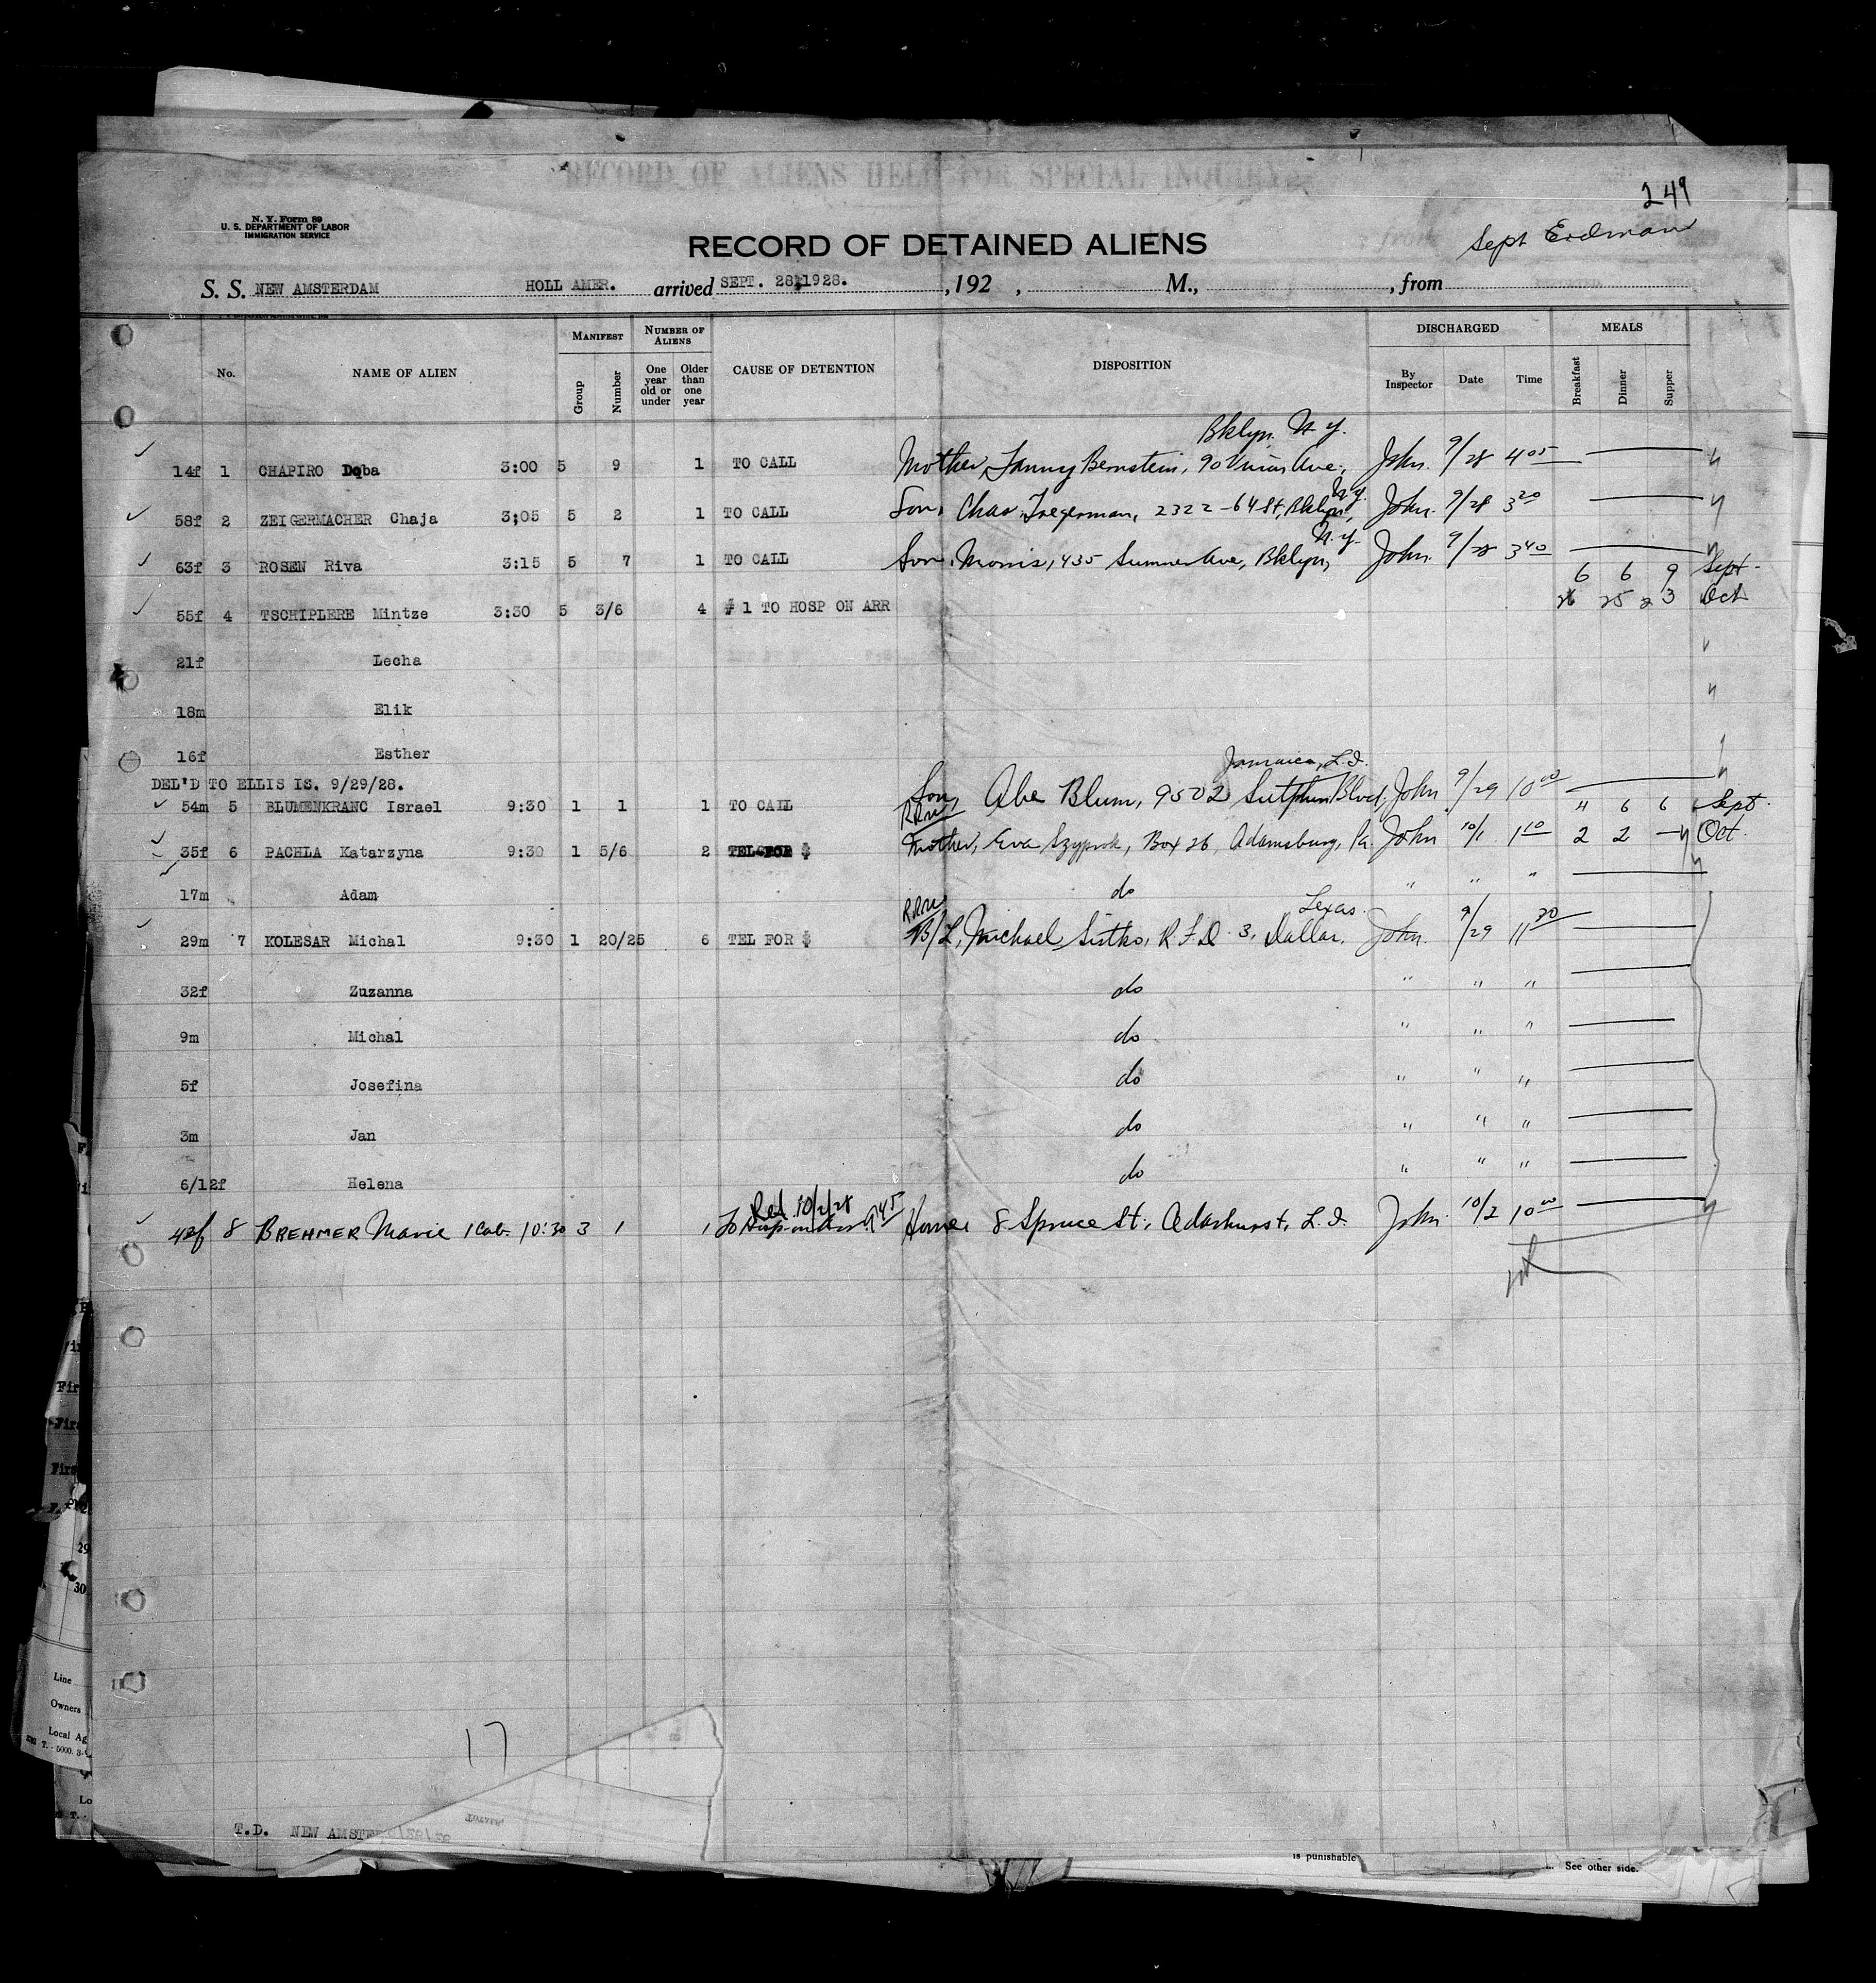 RECORD OF ALIENS HELD FOR SPECIAL INQUIRY
249
N. Y. Form 89
U. S. DEPARTMENT OF LABOR
IMMIGRATION SERVICE
RECORD OF DETAINED ALIENS
Sept Erdman
S. S. NEW AMSTERDAM HOLL AMER. arrived SEPT. 28, 1928. , 192 , M., , from
No. NAME OF ALIEN MANIFEST Group Number NUMBER OF ALIENS One year old or under Older than one year CAUSE OF DETENTION DISPOSITION DISCHARGED By Inspector Date Time MEALS Breakfast Dinner Supper
Bklyn. N. Y.
14f 1 CHAPIRO Doba 3:00 5 9 1 TO CALL Mother Fanny Bernstein, 90 Ave., John. 9/28 4 05
N.Y.
58f 2 ZEIGERMACHER Chaja 3;05 5 2 1 TO CALL Son, Chas. 2322-64 St, Bklyn, John. 9/28 3 20
N.Y.
63f 3 ROSEN Riva 3:15 5 7 1 TO CALL Son, Morris, 435 Sumner Ave, Bklyn, John. 9/28 3 40
6 6 9 Sept.
55f 4 TSCHIPLERE Mintze 3:30 5 3/6 4 # 1 TO HOSP ON ARR 26 25 23 Oct
21f Lecha
18m Elik
16f Esther
Jamaica, L.I.
DEL'D TO ELLIS IS. 9/29/28.
54m 5 BLUMENKRANC Israel 9:30 1 1 1 TO CALL Son, Abe Blum, 9502 Sutphin Blvd, John 9/29 10 00
" 6 6 Sept.
35f 6 PACHLA Katarzyna 9:30 1 5/6 2 TEL FOR $ Mother, Eva Box 26, Adamsburg, Pa. John 10/1 1 10 2 2 — Oct.
17m Adam do " " "
Texas.
29m 7 KOLESAR Michal 9:30 1 20/25 6 TEL FOR $ B/L, Michael Sistko, R.F.D. 3, Dallas, John. 9/29 11 30
32f Zuzanna do " " "
9m Michal do " " "
5f Josefina do " " "
3m Jan do " " "
6/12f Helena do " " "
Rel. 10/2/28 9 45
42f 8 BREHMER Marie 1 Cab. 10:30 3 1 1 To Hosp on Home 8 Spruce St., L.I. John. 10/2 10 00
17
T.D. NEW AMSTE
Line
Owners
Local Ag
is punishable
See other side.